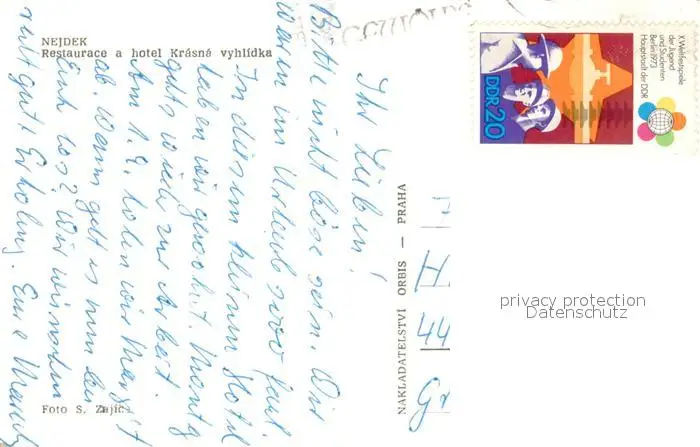 NEJDEK
Restaurace a hotel Krásná vyhlídka
Ihr Lieben!
Bitte nicht böse sein. Wir
waren im Urlaub sind faul.
In diesem kleinen Hotel
haben wir gewohnt. Montag
geht's wieder zur Arbeit.
Am 1.9. holen wir Margit
ab. Wann geht es nun bei
Euch los? Wir wünschen
recht gute Erholung. Eure
Foto S. Zajíc
NAKLADATELSTVÍ ORBIS — PRAHA
H
44
Gr
X. Weltfestspiele
der Jugend
und Studenten
Berlin 1973
Hauptstadt der DDR
DDR 20
privacy protection
Datenschutz